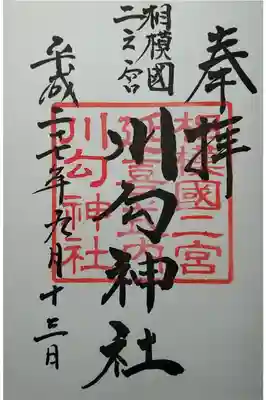 奉拝
相模國
二之宮
川勾神社
平成二七年九月十三日
相模國二宮
延喜式内
川勾神社